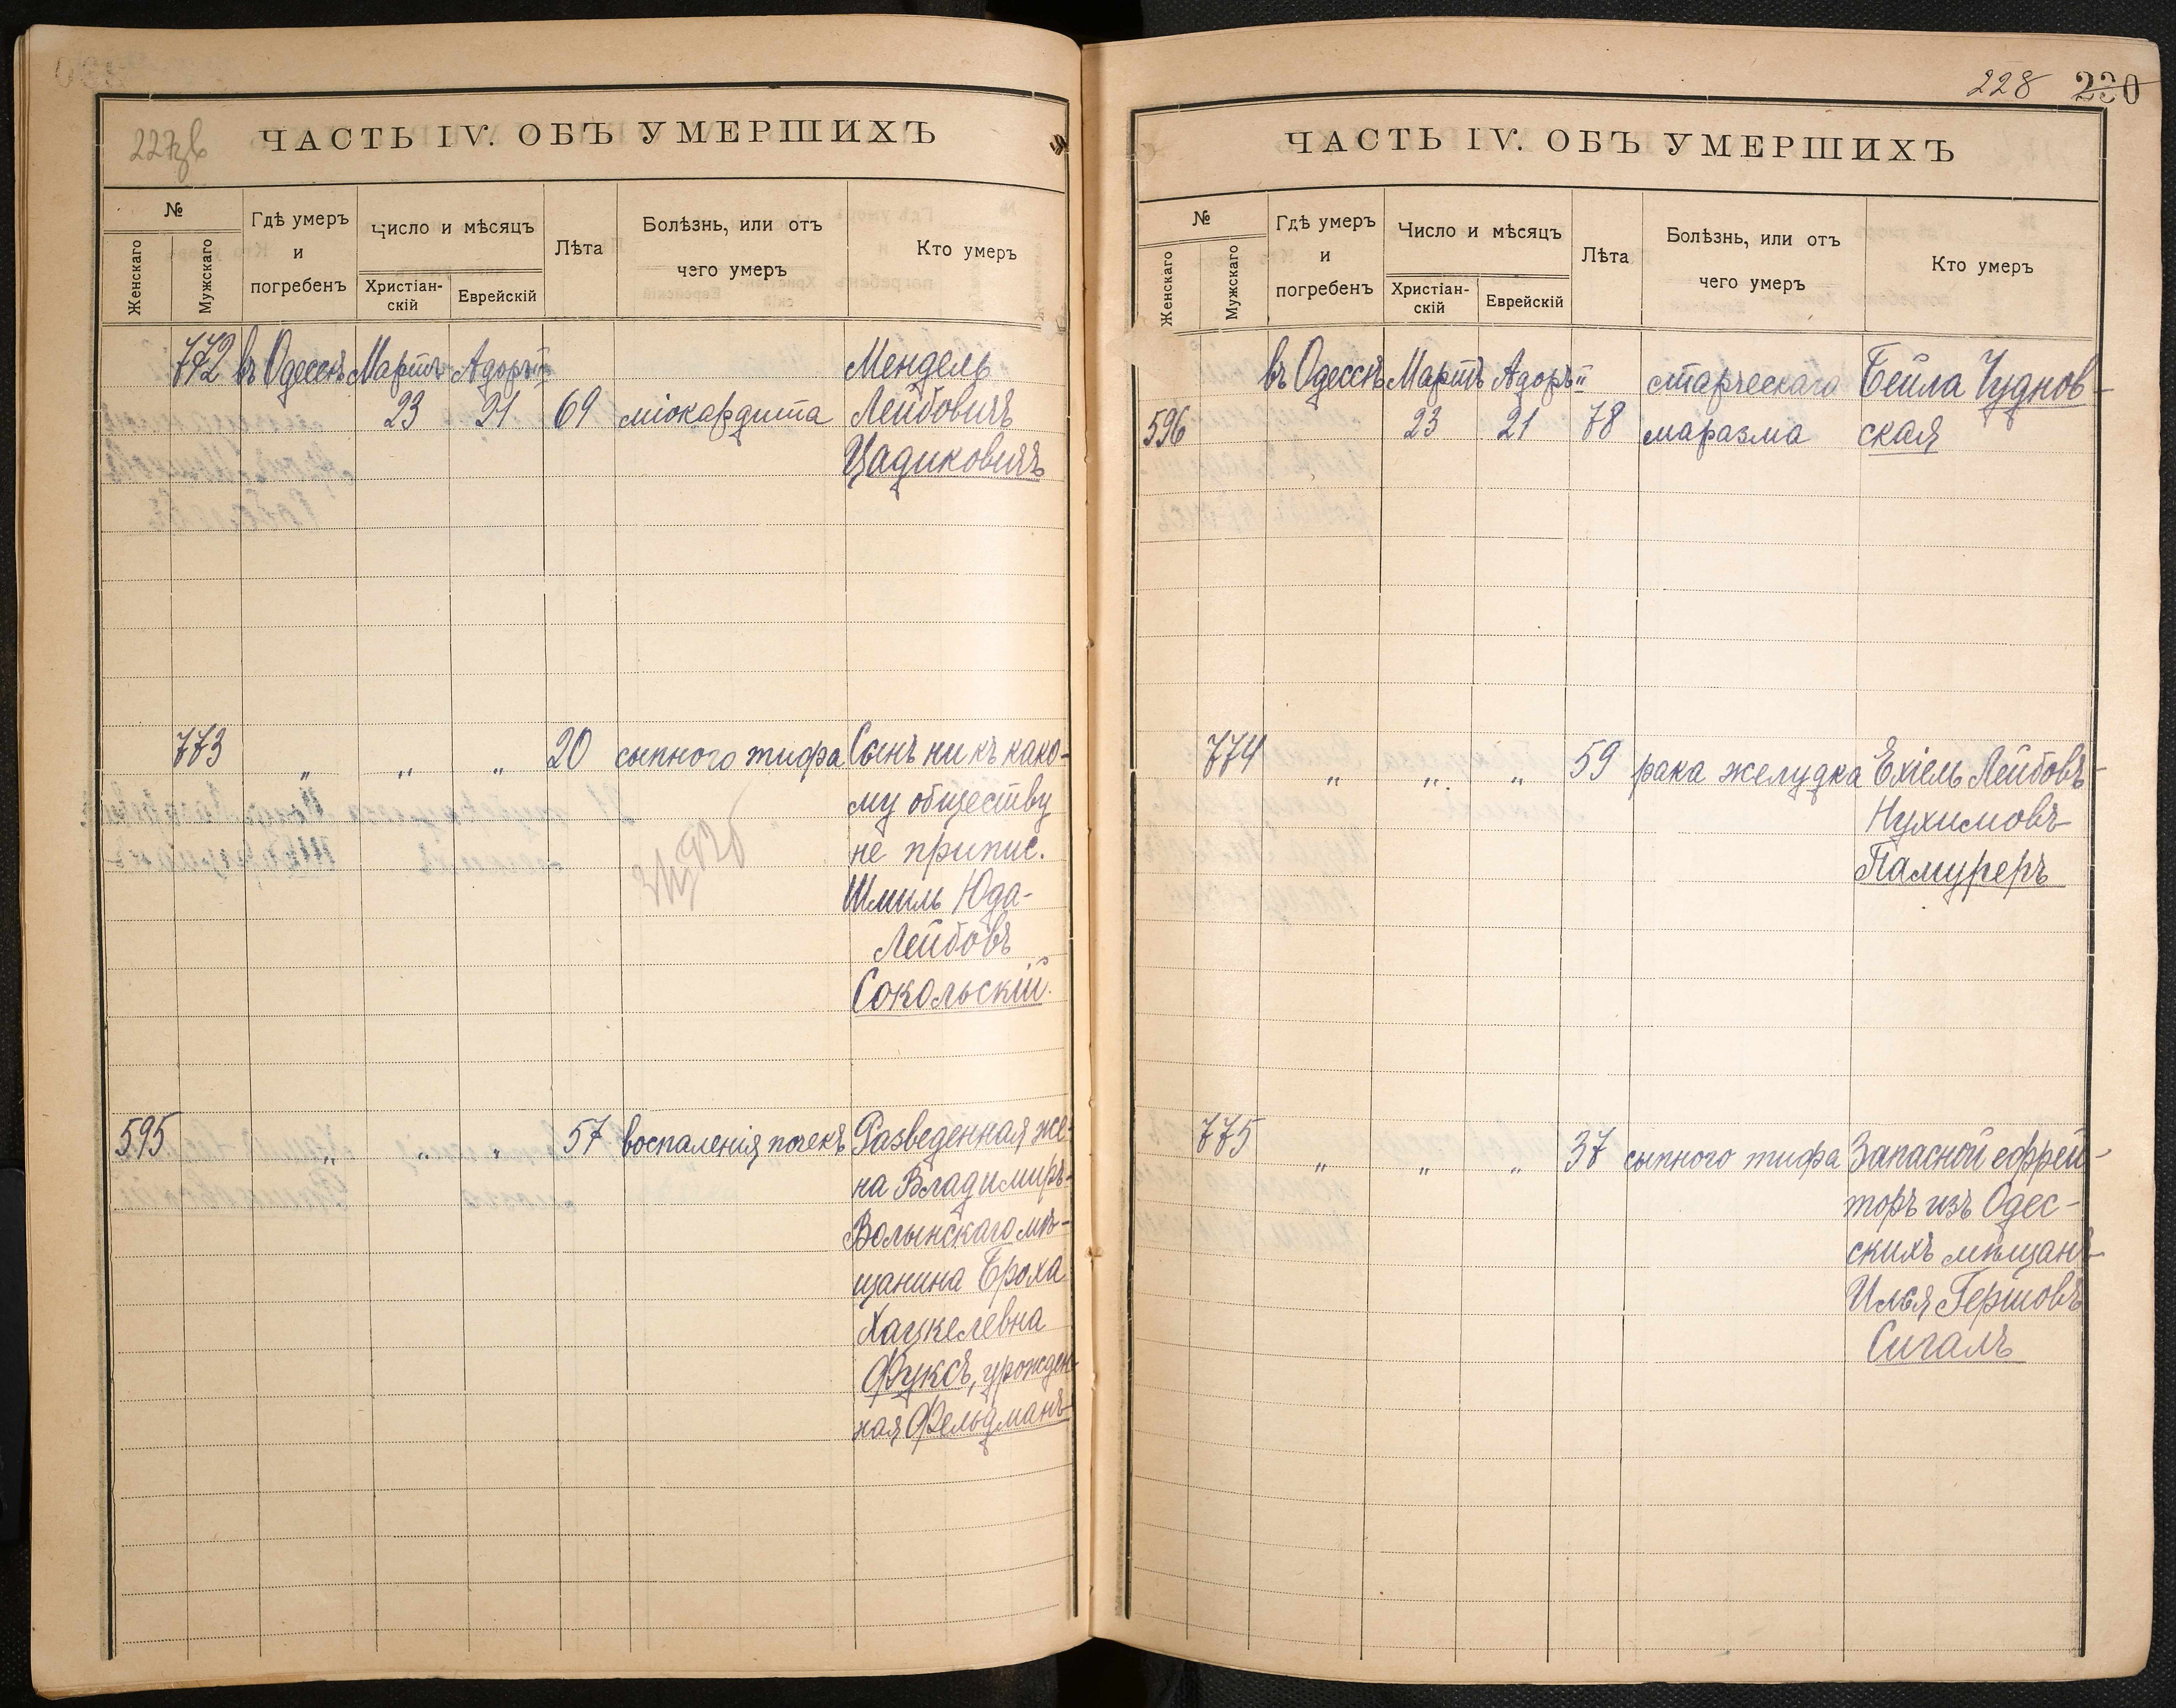 227об
ЧАСТЬ IV. ОБЪ УМЕРШИХЪ
№
Женскаго
Мужскаго
Гдѣ умеръ
и
погребенъ
Число и мѣсяцъ
Христіан-
скій
Еврейскій
Лѣта
Болѣзнь, или отъ
чего умеръ
Кто умеръ
772 въ Одессѣ Мартъ Адоръ II Мендель
23 21 69 міокардита Лейбовичъ
Цадиковичъ
773 „ „ „ 20 сыпного тифа Сынъ ни къ како-
му обществу
не припис.
Шмиль Юда-
Лейбовъ
Сокольскій.
595 „ „ „ 57 воспаленія почекъ Разведенная же-
на Владимиръ-
Волынскаго мѣ-
щанина Броха
Хацкелевна
Фуксъ, урожден-
ная Фельдманъ
228 230
ЧАСТЬ IV. ОБЪ УМЕРШИХЪ
№
Женскаго
Мужскаго
Гдѣ умеръ
и
погребенъ
Число и мѣсяцъ
Христіан-
скій
Еврейскій
Лѣта
Болѣзнь, или отъ
чего умеръ
Кто умеръ
въ Одессѣ Мартъ Адоръ II старческаго Бейла Чуднов-
596 23 21 78 маразма ская
774 „ „ „ 59 рака желудка Ехіель Лейбовъ-
Нухимовъ
Памуреръ
775 „ „ „ 37 сыпного тифа Запасной ефрей-
торъ изъ Одес-
скихъ мѣщанъ
Илья Гершовъ
Сигалъ